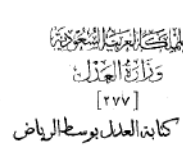 المملكة العربية السعودية
وزارة العدل
[٢٧٧]
كتابة العدل بوسط الرياض